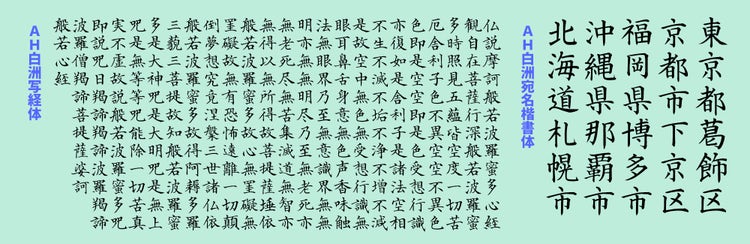 東京都葛飾区
京都市下京区
福岡県博多市
沖縄県那覇市
北海道札幌市
AH白洲宛名楷書体
仏説摩訶般若波羅蜜多心経
観自在菩薩行深般若波羅蜜
多時照見五蘊皆空度一切苦
厄舎利子色不異空空不異色
色即是空空即是色受想行識
亦復如是舎利子是諸法空相
不生不滅不垢不浄不増不減
是故空中無色無受想行識無
眼耳鼻舌身意無色声香味触
法無眼界乃至無意識界無無
明亦無無明尽乃至無老死亦
無老死尽無苦集滅道無智亦
無得以無所得故菩提薩埵依
般若波羅蜜多故心無罣礙無
罣礙故無有恐怖遠離一切顛
倒夢想究竟涅槃三世諸仏依
般若波羅蜜多故得阿耨多羅
三藐三菩提故知般若波羅蜜
多是大神呪是大明呪是無上
呪是無等等呪能除一切苦真
実不虚故説般若波羅蜜多呪
即説呪曰羯諦羯諦波羅羯諦
波羅僧羯諦菩提薩婆訶
般若心経
AH白洲写経体